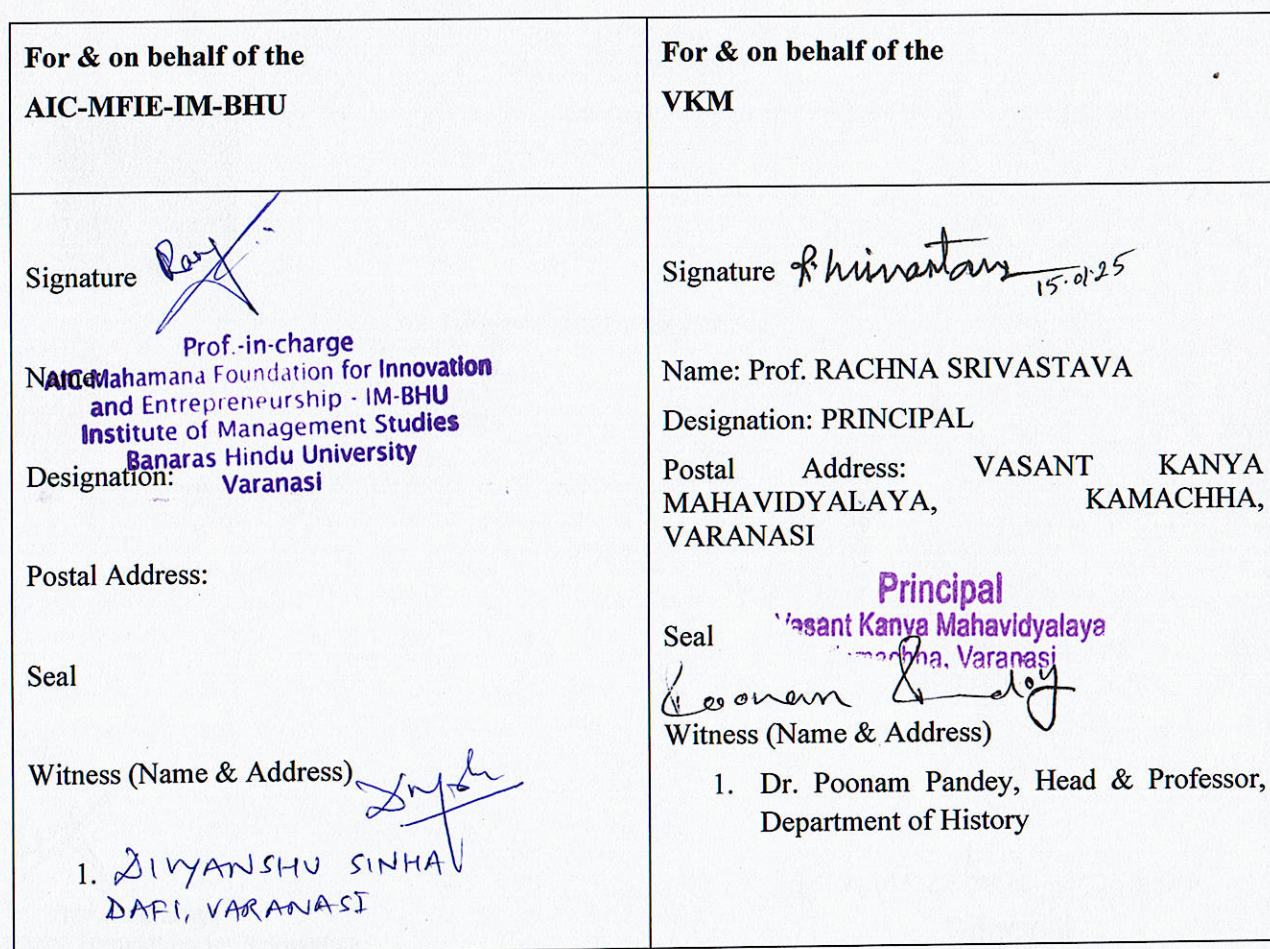 For & on behalf of the
AIC-MFIE-IM-BHU
Signature
Prof.-in-charge
Name:
AIC-Mahamana Foundation for Innovation
and Entrepreneurship - IM-BHU
Institute of Management Studies
Banaras Hindu University
Designation:
Varanasi
Postal Address:
Seal
Witness (Name & Address)
1. DIVYANSHU SINHA
DAFI, VARANASI
For & on behalf of the
VKM
Signature
15.01.25
Name: Prof. RACHNA SRIVASTAVA
Designation: PRINCIPAL
Postal Address: VASANT KANYA
MAHAVIDYALAYA, KAMACHHA,
VARANASI
Principal
Vasant Kanya Mahavidyalaya
Seal
Varanasi
Poonam Pandey
Witness (Name & Address)
1. Dr. Poonam Pandey, Head & Professor,
Department of History